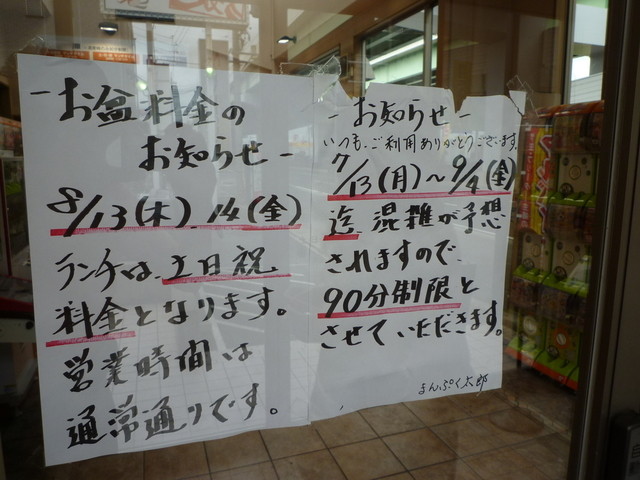 -お盆料金の
お知らせ-
8/13(木).14(金)
ランチは、土日祝
料金となります。
営業時間は
通常通りです。
-お知らせ-
いつも、ご利用ありがとうございます。
7/13(月)～9/4(金)
迄、混雑が予想
されますので、
90分制限と
させていただきます。
まんぷく太郎